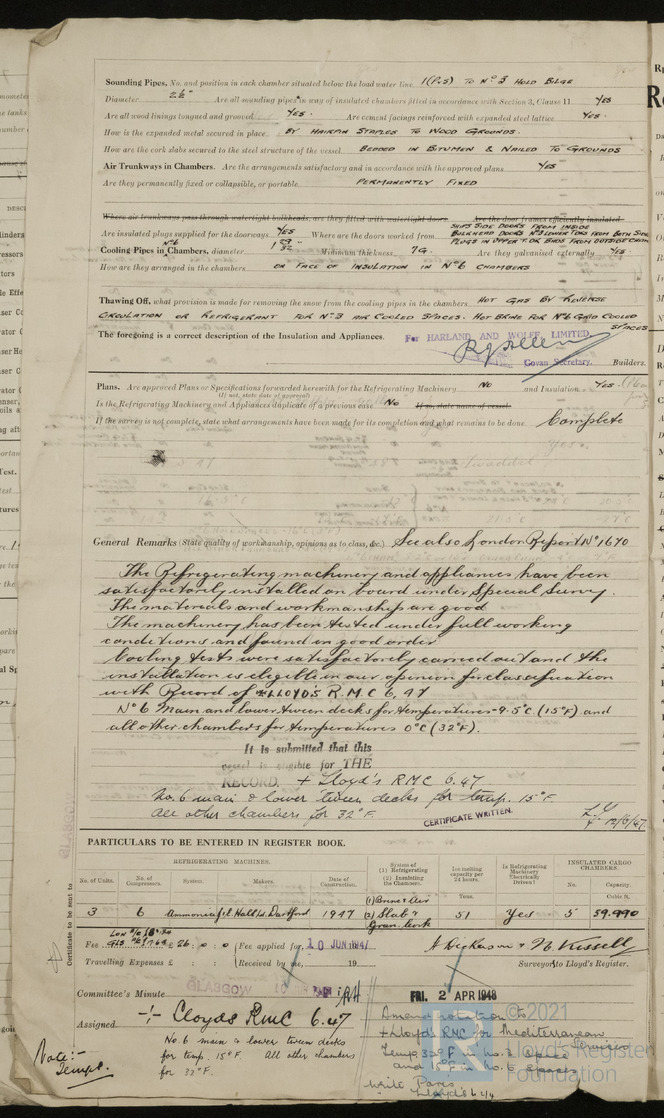 Sounding Pipes. No. and position in each chamber situated below the load water line 1 (P.S) TO Nº 3 HOLD BILGE
Diameter 2½" Are all sounding pipes in way of insulated chambers fitted in accordance with Section 3, Clause 11 YES
Are all wood linings tongued and grooved YES. Are cement facings reinforced with expanded steel lattice YES.
How is the expanded metal secured in place BY HAIRPIN STAPLES TO WOOD GROUNDS.
How are the cork slabs secured to the steel structure of the vessel BEDDED IN BITUMEN & NAILED TO GROUNDS
Air Trunkways in Chambers. Are the arrangements satisfactory and in accordance with the approved plans YES
Are they permanently fixed or collapsible, or portable PERMANENTLY FIXED
Where air trunkways pass through watertight bulkheads, are they fitted with watertight doors Are the door frames efficiently insulated
Are insulated plugs supplied for the doorways YES Where are the doors worked from SHIPS SIDE DOORS FROM INSIDE
BULKHEAD DOORS Nº 3 LOWER FROM BOTH SIDES
PLUGS IN UPPER T.DK FROM OUTSIDE
Nº 6
Cooling Pipes in Chambers, diameter 1 29/32 Minimum thickness 7G. Are they galvanised externally YES
How are they arranged in the chambers ON FACE OF INSULATION IN Nº 6 CHAMBERS
Thawing Off, what provision is made for removing the snow from the cooling pipes in the chambers HOT GAS BY REVERSE
CIRCULATION OR REFRIGERANT FOR Nº 3 AIR COOLED SPACES. HOT BRINE FOR Nº 6 GRID COOLED
SPACES
The foregoing is a correct description of the Insulation and Appliances. For HARLAND AND WOLFF, LIMITED,
Govan Secretary. Builders.
Plans. Are approved Plans or Specifications forwarded herewith for the Refrigerating Machinery No and Insulation YES.
(If not, state date of approval)
Is the Refrigerating Machinery and Appliances duplicate of a previous case No If so, state name of vessel
If the survey is not complete, state what arrangements have been made for its completion and what remains to be done Complete
General Remarks (State quality of workmanship, opinions as to class, &c.) See also London Report Nº 1670
The Refrigerating machinery and appliances have been
satisfactorily installed on board under Special Survey.
The materials and workmanship are good
The machinery has been tested under full working
conditions and found in good order
Cooling tests were satisfactorily carried out and the
installation is eligible in our opinion for classification
with Record of + LLOYD'S R.M.C 6, 47
Nº 6 Main and lower tween decks for temperatures -9.5°C. (15°F) and
all other chambers for temperatures 0°C (32°F).
It is submitted that this
vessel is eligible for THE
RECORD. + Lloyd's RMC 6.47
No. 6 main & lower tween decks for temp. 15°F.
All other chambers for 32°F.
CERTIFICATE WRITTEN.
12/6/47
PARTICULARS TO BE ENTERED IN REGISTER BOOK.
REFRIGERATING MACHINES.
No. of Units. No. of Compressors. System. Makers. Date of Construction.
System of (1) Refrigerating (2) Insulating the Chambers.
Ice melting capacity per 24 hours. Tons.
Is Refrigerating Machinery Electrically Driven?
INSULATED CARGO CHAMBERS. No. Capacity. Cubic ft.
3 6 Ammonia J & E Hall Ltd. Dartford 1947 (1) Brine & Air (2) Slab & Gran. Cork 51 Yes 5 59.990
Certificate to be sent to
Fee £ 26 : 0 : 0 Fee applied for, 10 JUN 1947
Travelling Expenses £ : : Received by me, 19
A. Dickerson & Surveyor to Lloyd's Register.
Committee's Minute GLASGOW
FRI. 2 APR 1948
Assigned -:- Lloyds RMC 6.47
No. 6 main & lower tween decks
for temp. 15°F. All other chambers
for 32°F.
Note:-
Temps.
Amend notation to
+ Lloyd's RMC for Mediterranean
Services
Temp 32°F in No. 3
and 15°F in No. 6 spaces
Write Paris
© 2021
Lloyd's Register
Foundation